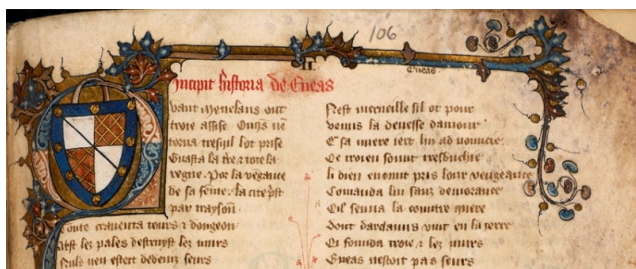 106
Eneas
Incipit historia de Eneas
Qvant menelaus out
troie assise Onqs ne
torna tresqil lot prise
Guasta la tre ⁊ tote la
regne · Por la vegance
de sa feme · la cite pst
par trayson
Toute crauenta tours ⁊ dongeon
lez pales destruyst lez murs
Nuls nen estert dedenz seurs
Nest merueille sil ot pour
venus la deuesse damour
sa miere iert lui ad
Qe troien sount tresbuchie
li dieu enount pris lour veugeance
Comauda lui sanz demorance
Qil senua la countre quere
Dont dardanus vint en la terre
Qi founda troie ⁊ lez murs
Eneas nestoit pas seurs